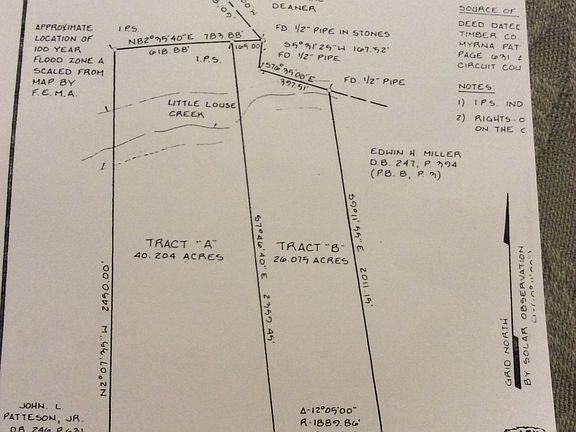 DEANER
SOURCE OF
APPROXIMATE
LOCATION OF
100 YEAR
FLOOD ZONE A
SCALED FROM
MAP BY
F.E.M.A.
I.P.S.
N82°35'40"E 783.88'
618.88'
165.00'
I.P.S.
FD. 1/2" PIPE IN STONES
S5°31'25"W 167.52'
FD. 1/2" PIPE
S76°35'00"E
357.51'
FD. 1/2" PIPE
DEED DATED
TIMBER CO.
MYRNA PAT
PAGE 631 &
CIRCUIT COU
NOTES:
1) I.P.S. IND
2) RIGHTS-O
ON THE
LITTLE LOUSE
CREEK
EDWIN H MILLER
D.B. 247, P. 394
(P.B. B, P. 3)
TRACT "A"
40.204 ACRES
TRACT "B"
26.075 ACRES
N2°07'35"W 2450.00'
S7°46'40"E 2359.45'
S9°11'55"E 2011.15'
GRID NORTH
BY SOLAR OBSERVATION
JOHN L.
PATTESON, JR.
D.B. 246 P.631
Δ-12°05'00"
R-1889.86'